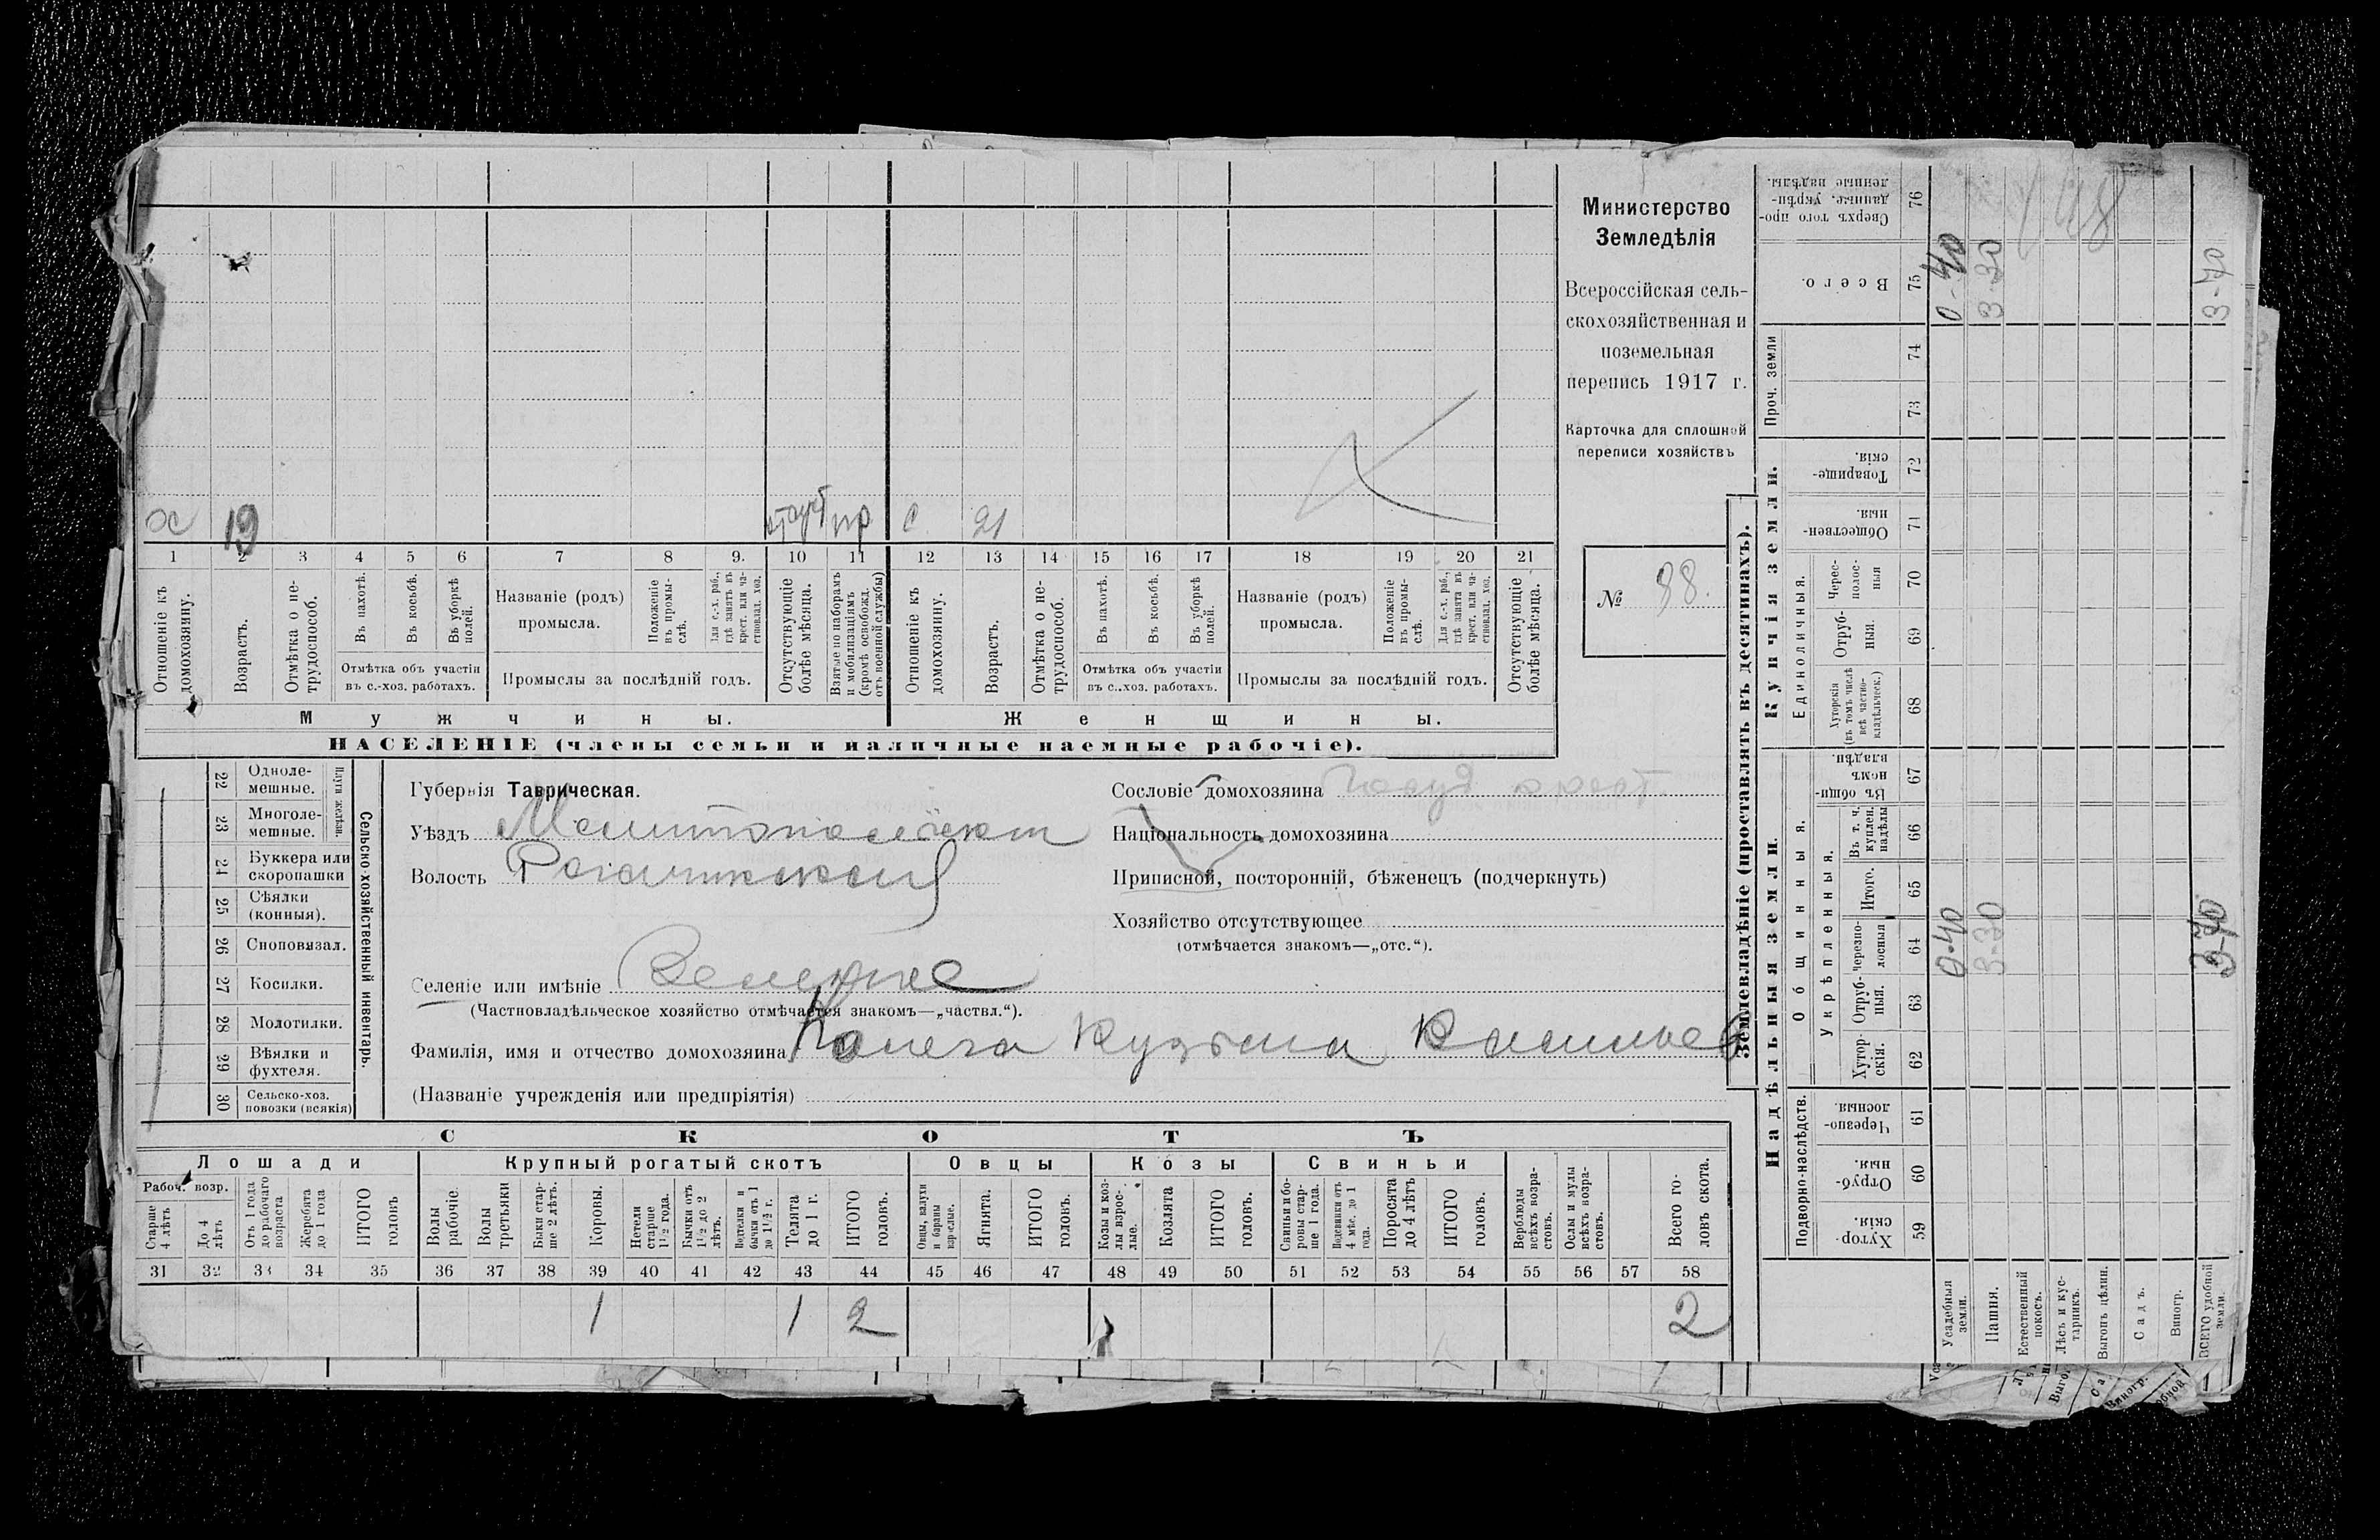 х 19 отсут пр с 21
1 2 3 4 5 6 7 8 9. 10 11 12 13 14 15 16 17 18 19 20 21
Отношеніе къ домохозяину.
Возрастъ.
Отмѣтка о не-
трудоспособ.
Въ пахотѣ.
Въ косьбѣ.
Въ уборкѣ
полей.
Отмѣтка объ участіи
въ с.-хоз. работахъ.
Названіе (родъ)
промысла.
Положеніе
въ промы-
слѣ.
Для с.-х. раб.,
гдѣ занятъ въ
крест. или ча-
стновлад. хоз.
Промыслы за послѣдній годъ.
Отсутствующіе
болѣе мѣсяца.
Взятые по наборамъ
и мобилизаціямъ
(кромѣ освобожд.
отъ военной службы)
Отношеніе къ
домохозяину.
Возрастъ.
Отмѣтка о не-
трудоспособ.
Въ пахотѣ.
Въ косьбѣ.
Въ уборкѣ
полей.
Отмѣтка объ участіи
въ с..хоз. работахъ.
Названіе (родъ)
промысла.
Положеніе
въ промы-
слѣ.
Для с.-х. раб.,
гдѣ занята въ
крест. или ча-
стновлад. хоз.
Промыслы за послѣдній годъ.
Отсутствующіе
болѣе мѣсяца.
Мужчины.
Женщины.
НАСЕЛЕНІЕ (члены семьи и наличные наемные рабочіе).
Министерство
Земледѣлія
Всероссійская сель-
скохозяйственная и
поземельная
перепись 1917 г.
Карточка для сплошной
переписи хозяйствъ
№ 98.
22 Одноле-
мешные.
23 Многоле-
мешные.
Плуги желѣзн.
24 Буккера или
скоропашки
25 Сѣялки
(конныя).
26 Сноповязал.
27 Косилки.
28 Молотилки.
29 Вѣялки и
фухтеля.
30 Сельско-хоз.
повозки (всякія)
Сельско-хозяйственный инвентарь.
Губернія Таврическая.
Уѣздъ Мелитопольскій
Волость Рогачикская
Селеніе или имѣніе
(Частновладѣльческое хозяйство отмѣчается знакомъ—„частвл.“).
Фамилія, имя и отчество домохозяина Кузьма Васильев
(Названіе учрежденія или предпріятія)
Сословіе домохозяина крест.
Національность домохозяина
Приписной, посторонній, бѣженецъ (подчеркнуть)
Хозяйство отсутствующее
(отмѣчается знакомъ—„отс.“).
СКОТЪ
Лошади
Крупный рогатый скотъ
Овцы
Козы
Свиньи
Рабоч. возр.
Старше
4 лѣтъ
До 4
лѣтъ
Отъ 1 года
до рабочаго
возраста
Жеребята
до 1 года
ИТОГО
головъ
Волы
рабочіе.
Волы
третьяки
Быки стар-
ше 2 лѣтъ.
Коровы.
Нетели
старше
1½ года.
Бычки отъ
1½ до 2
лѣтъ.
Подтелки и
бычки отъ 1
до 1½ г.
Телята
до 1 г.
ИТОГО
головъ.
Овцы, валухи
и бараны
взрослые.
Ягнята.
ИТОГО
головъ.
Козы и коз-
лы взрос-
лые.
Козлята
ИТОГО
головъ.
Свиньи и бо-
ровы стар-
ше 1 года.
Подсвинки отъ
4 мѣс. до 1
года.
Поросята
до 4 лѣтъ
ИТОГО
головъ.
Верблюды
всѣхъ возра-
стовъ.
Ослы и мулы
всѣхъ возра-
стовъ.
Всего го-
ловъ скота.
31 32 33 34 35 36 37 38 39 40 41 42 43 44 45 46 47 48 49 50 51 52 53 54 55 56 57 58
1 1 2 2
Землевладѣніе (проставлять въ десятинахъ).
Надѣльныя земли.
Купчія земли.
Проч. земли
Подворно-наслѣдств.
Общинныя.
Укрѣпленныя.
Единоличныя.
Хутор-
скія.
59
Отруб-
ныя.
60
Черезпо-
лосныя
61
Хутор-
скія.
62
Отруб-
ныя.
63
Черезпо-
лосныя
64
Итого.
65
Въ т. ч.
куплен.
надѣлы
66
Въ общи-
номъ
владѣн.
67
Хуторскія
(въ томъ числѣ
всѣ частно-
владѣльческ.)
68
Отруб-
ныя.
69
Черес-
полос-
ныя
70
Обществен-
ныя.
71
Товарище-
скія.
72
73
74
Всего.
75
Сверхъ того про-
данные, укрѣп-
ленные надѣлы.
76
Усадебныя
земли. 0-40 0-40
Пашня. 3-30 3-30
Естественный
покосъ.
Лѣсъ и кус-
тарникъ.
Выгонъ цѣлин.
Садъ.
Виногр.
ВСЕГО удобной
земли. 3-70 3-70
148